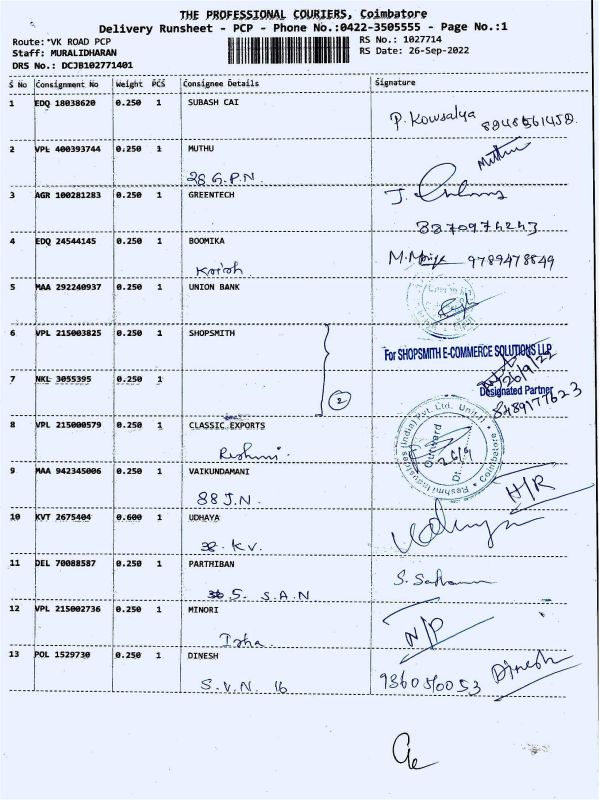 THE PROFESSIONAL COURIERS, Coimbatore
Delivery Runsheet - PCP - Phone No.:0422-3505555 - Page No.:1
Route: VK ROAD PCP
RS No.: 1027714
Staff: MURALIDHARAN
RS Date: 26-Sep-2022
DRS No.: DCJB102771401
S No Consignment No Weight PCS Consignee Details Signature
1 EDQ 18038620 0.250 1 SUBASH CAI
P. Kowsalya
2 VPL 400393744 0.250 1 MUTHU
Muthu
28 G.P.N.
3 AGR 100281283 0.250 1 GREENTECH
J.
8870974243
4 EDQ 24544145 0.250 1 BOOMIKA
M. 9789478849
5 MAA 292240937 0.250 1 UNION BANK
6 VPL 215003825 0.250 1 SHOPSMITH
For SHOPSMITH E-COMMERCE SOLUTIONS LLP
26/9/22
7 NKL 3055395 0.250 1
2
Designated Partner
8489177623
8 VPL 215000579 0.250 1 CLASSIC EXPORTS
Reshmi Industries (India) Pvt. Ltd. Unit-I
Coimbatore
Outward
Dt. 26/9
Reshmi.
9 MAA 942345006 0.250 1 VAIKUNDAMANI
88 J.N.
H/R
10 KVT 2675404 0.600 1 UDHAYA
Udhaya
K.V.
11 DEL 70088587 0.250 1 PARTHIBAN
S.
S. S.A.N
12 VPL 215002736 0.250 1 MINORI
N/P
Isha.
13 POL 1529730 0.250 1 DINESH
Dinesh
9360510053
S.V.N. 16